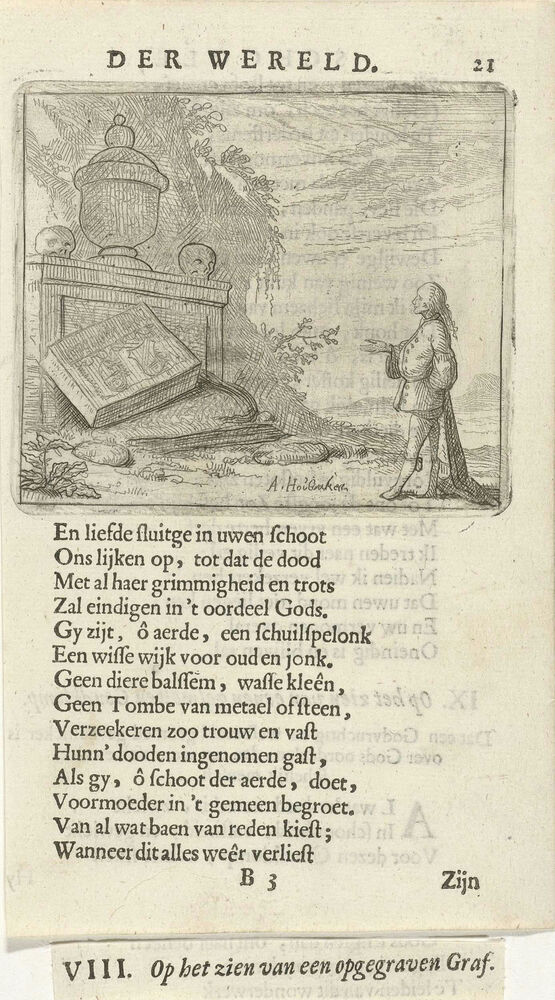 DER WERELD. 21
A. Houbraken
En liefde ſluitge in uwen ſchoot
Ons lijken op, tot dat de dood
Met al haer grimmigheid en trots
Zal eindigen in 't oordeel Gods.
Gy zijt, ô aerde, een ſchuilſpelonk
Een wiſſe wijk voor oud en jonk.
Geen diere balſſem, waſſe kleên,
Geen Tombe van metael of ſteen,
Verzeekeren zoo trouw en vaſt
Hunn' dooden ingenomen gaſt,
Als gy, ô ſchoot der aerde, doet,
Voormoeder in 't gemeen begroet.
Van al wat baen van reden kieſt;
Wanneer dit alles weêr verlieſt
B 3 Zijn
VIII. Op het zien van een opgegraven Graf.